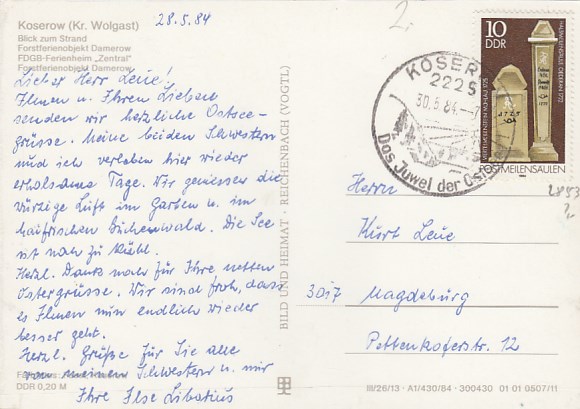 Koserow (Kr. Wolgast)
Blick zum Strand
Forstferienobjekt Damerow
FDGB-Ferienheim „Zentral"
Forstferienobjekt Damerow
28.5.84
Lieber Herr Leue!
Ihnen u. Ihren Lieben
senden wir herzliche Ostsee-
grüsse. Meine beiden Schwestern
und ich verleben hier wieder
erholsame Tage. Wir geniessen die
würzige Luft im Garten u. im
maifrischen Buchenwald. Die See
ist noch zu kühl.
Herzl. Dank noch für Ihre netten
Ostergrüsse. Wir sind froh, dass
es Ihnen nun endlich wieder
besser geht.
Herzl. Grüße für Sie alle
von meinen Schwestern u. mir
Ihre Ilse Libatius
DDR 0,20 M
BILD UND HEIMAT · REICHENBACH (VOGTL)
2.
KOSEROW
2225
30.5.84.
Das Juwel der Ostsee
10
DDR
POSTMEILENSÄULEN
Herrn
Kurt Leue
3017 Magdeburg
Pettenkoferstr. 12
III/26/13 · A1/430/84 · 300430 01 01 0507/11